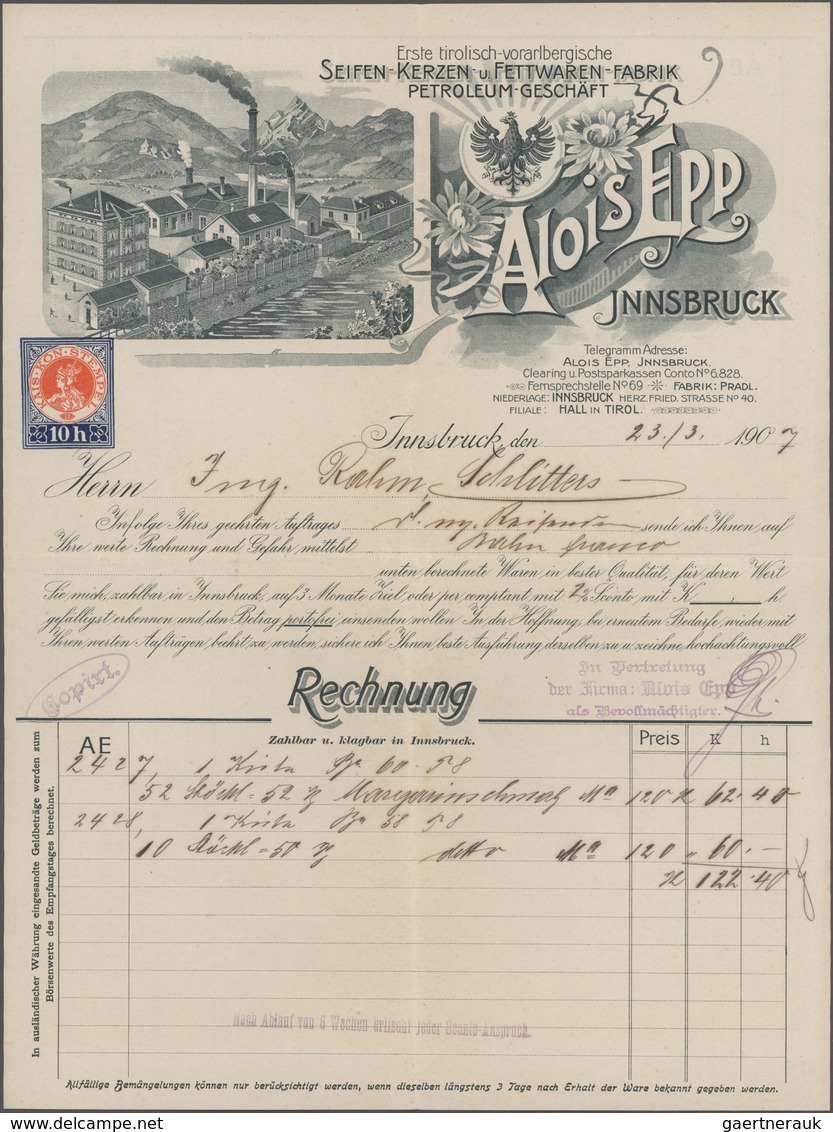 Erste tirolisch-vorarlbergische
SEIFEN-KERZEN-u. FETTWAREN-FABRIK
PETROLEUM-GESCHÄFT
ALOIS EPP
JNNSBRUCK
KAIS·KÖN·STEMPEL
10 h
Telegramm Adresse:
ALOIS EPP, JNNSBRUCK.
Clearing u. Postsparkassen Conto No 6.828.
Fernsprechstelle No 69 FABRIK: PRADL.
NIEDERLAGE: INNSBRUCK HERZ. FRIED. STRASSE No 40.
FILIALE: HALL IN TIROL.
Innsbruck, den 23./3. 1907
Herrn Ing. Rahm, Schlitters
Infolge Ihres geehrten Auftrages d. Reisenden sende ich Ihnen auf
Ihre werte Rechnung und Gefahr, mittelst Bahn franco
unten berechnete Waren in bester Qualität, für deren Wert
Sie mich, zahlbar in Innsbruck, auf 3 Monate Ziel oder per comptant mit 2% Sconto mit K . h.
gefälligst erkennen und den Betrag portofrei einsenden wollen. In der Hoffnung, bei erneutem Bedarfe, wieder mit
Ihren werten Aufträgen beehrt zu werden, sichere ich Ihnen beste Ausführung derselben zu u. zeichne, hochachtungsvoll
Copirt
Rechnung
In Vertretung
der Firma: Alois Epp
als Bevollmächtigter.
AE
Zahlbar u. klagbar in Innsbruck.
Preis K h
2427, 1 Kiste 60·58
52 Stöckl = 52 Margarinschmalz 120 K 62·40
2428, 1 Kiste 58 58
10 Stöckl = 50 detto 120 " 60.—
K 122·40
Nach Ablauf von 6 Wochen erlischt jeder Sconto-Anspruch.
In ausländischer Währung eingesandte Geldbeträge werden zum
Börsenwerte des Empfangstages berechnet.
Allfällige Bemängelungen können nur berücksichtigt werden, wenn dieselben längstens 3 Tage nach Erhalt der Ware bekannt gegeben werden.
gaertnerauk